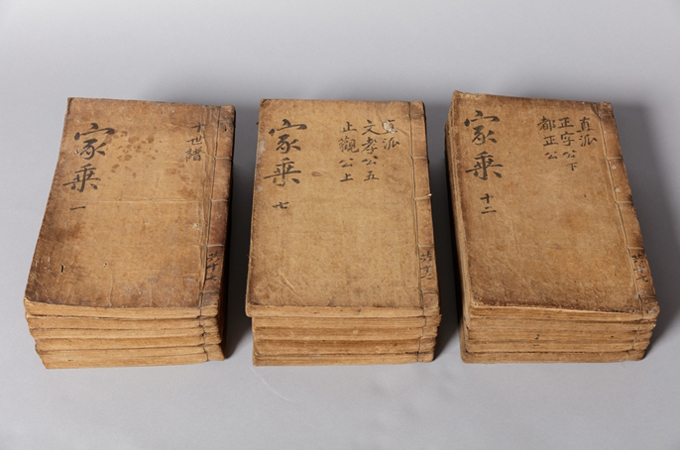 十世譜
家乘 一
直派
文孝公五
止觀公上
家乘 七
直派
正字公下
都正公
家乘 十二